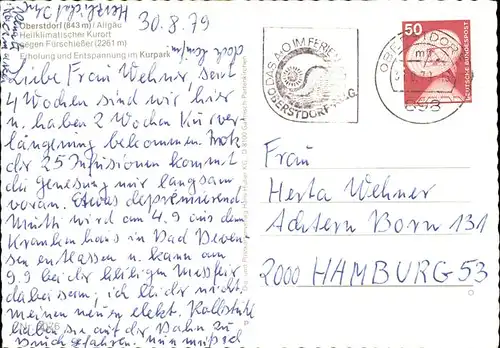 30.8.79
Oberstdorf (843 m) / Allgäu
Heilklimatischer Kurort
gegen Fürschießer (2261 m)
Erholung und Entspannung im Kurpark
Liebe Frau Wehner, seit
4 Wochen sind wir hier
u. haben 2 Wochen Kurver-
längerung bekommen. Trotz
der 25 Infusionen kommt
die Genesung nur langsam
voran. Etwas deprimierend.
Mutti wird am 4.9 aus dem
Krankenhaus in Bad Beven-
sen entlassen u. kann am
9.9 bei der heiligen Messfeier
dabei sein; ich leider nicht.
meinen neuen elekt. Rollstuhl
haben sie auf der Bahn zu
Bruch gefahren. nun
DAS A-O IM FERIEN
OBERSTDORF
OBERSTDORF
50
DEUTSCHE BUNDESPOST
Frau
Herta Wehner
Achtern Born 131
2000 HAMBURG 53